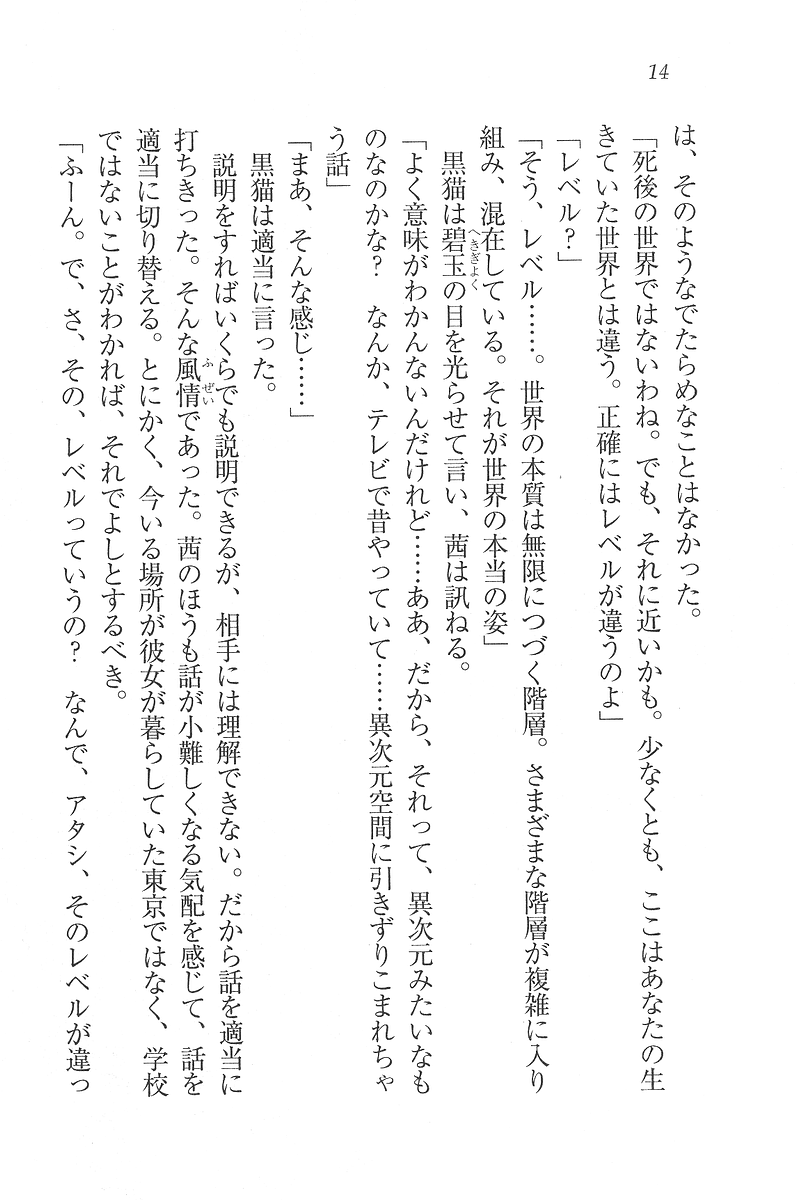 14
は、そのようなでたらめなことはなかった。
「死後の世界ではないわね。でも、それに近いかも。少なくとも、ここはあなたの生
きていた世界とは違う。正確にはレベルが違うのよ」
「レベル？」
「そう、レベル……。世界の本質は無限につづく階層。さまざまな階層が複雑に入り
組み、混在している。それが世界の本当の姿」
黒猫は碧玉の目を光らせて言い、茜は訊ねる。
へきぎよく
「よく意味がわかんないんだけれど……ああ、だから、それって、異次元みたいなも
のなのかな？　なんか、テレビで昔やっていて……異次元空間に引きずりこまれちゃ
う話」
「まあ、そんな感じ……」
黒猫は適当に言った。
説明をすればいくらでも説明できるが、相手には理解できない。だから話を適当に
打ちきった。そんな風情であった。茜のほうも話が小難しくなる気配を感じて、話を
ふぜい
適当に切り替える。とにかく、今いる場所が彼女が暮らしていた東京ではなく、学校
ではないことがわかれば、それでよしとするべき。
「ふーん。で、さ、その、レベルっていうの？　なんで、アタシ、そのレベルが違っ